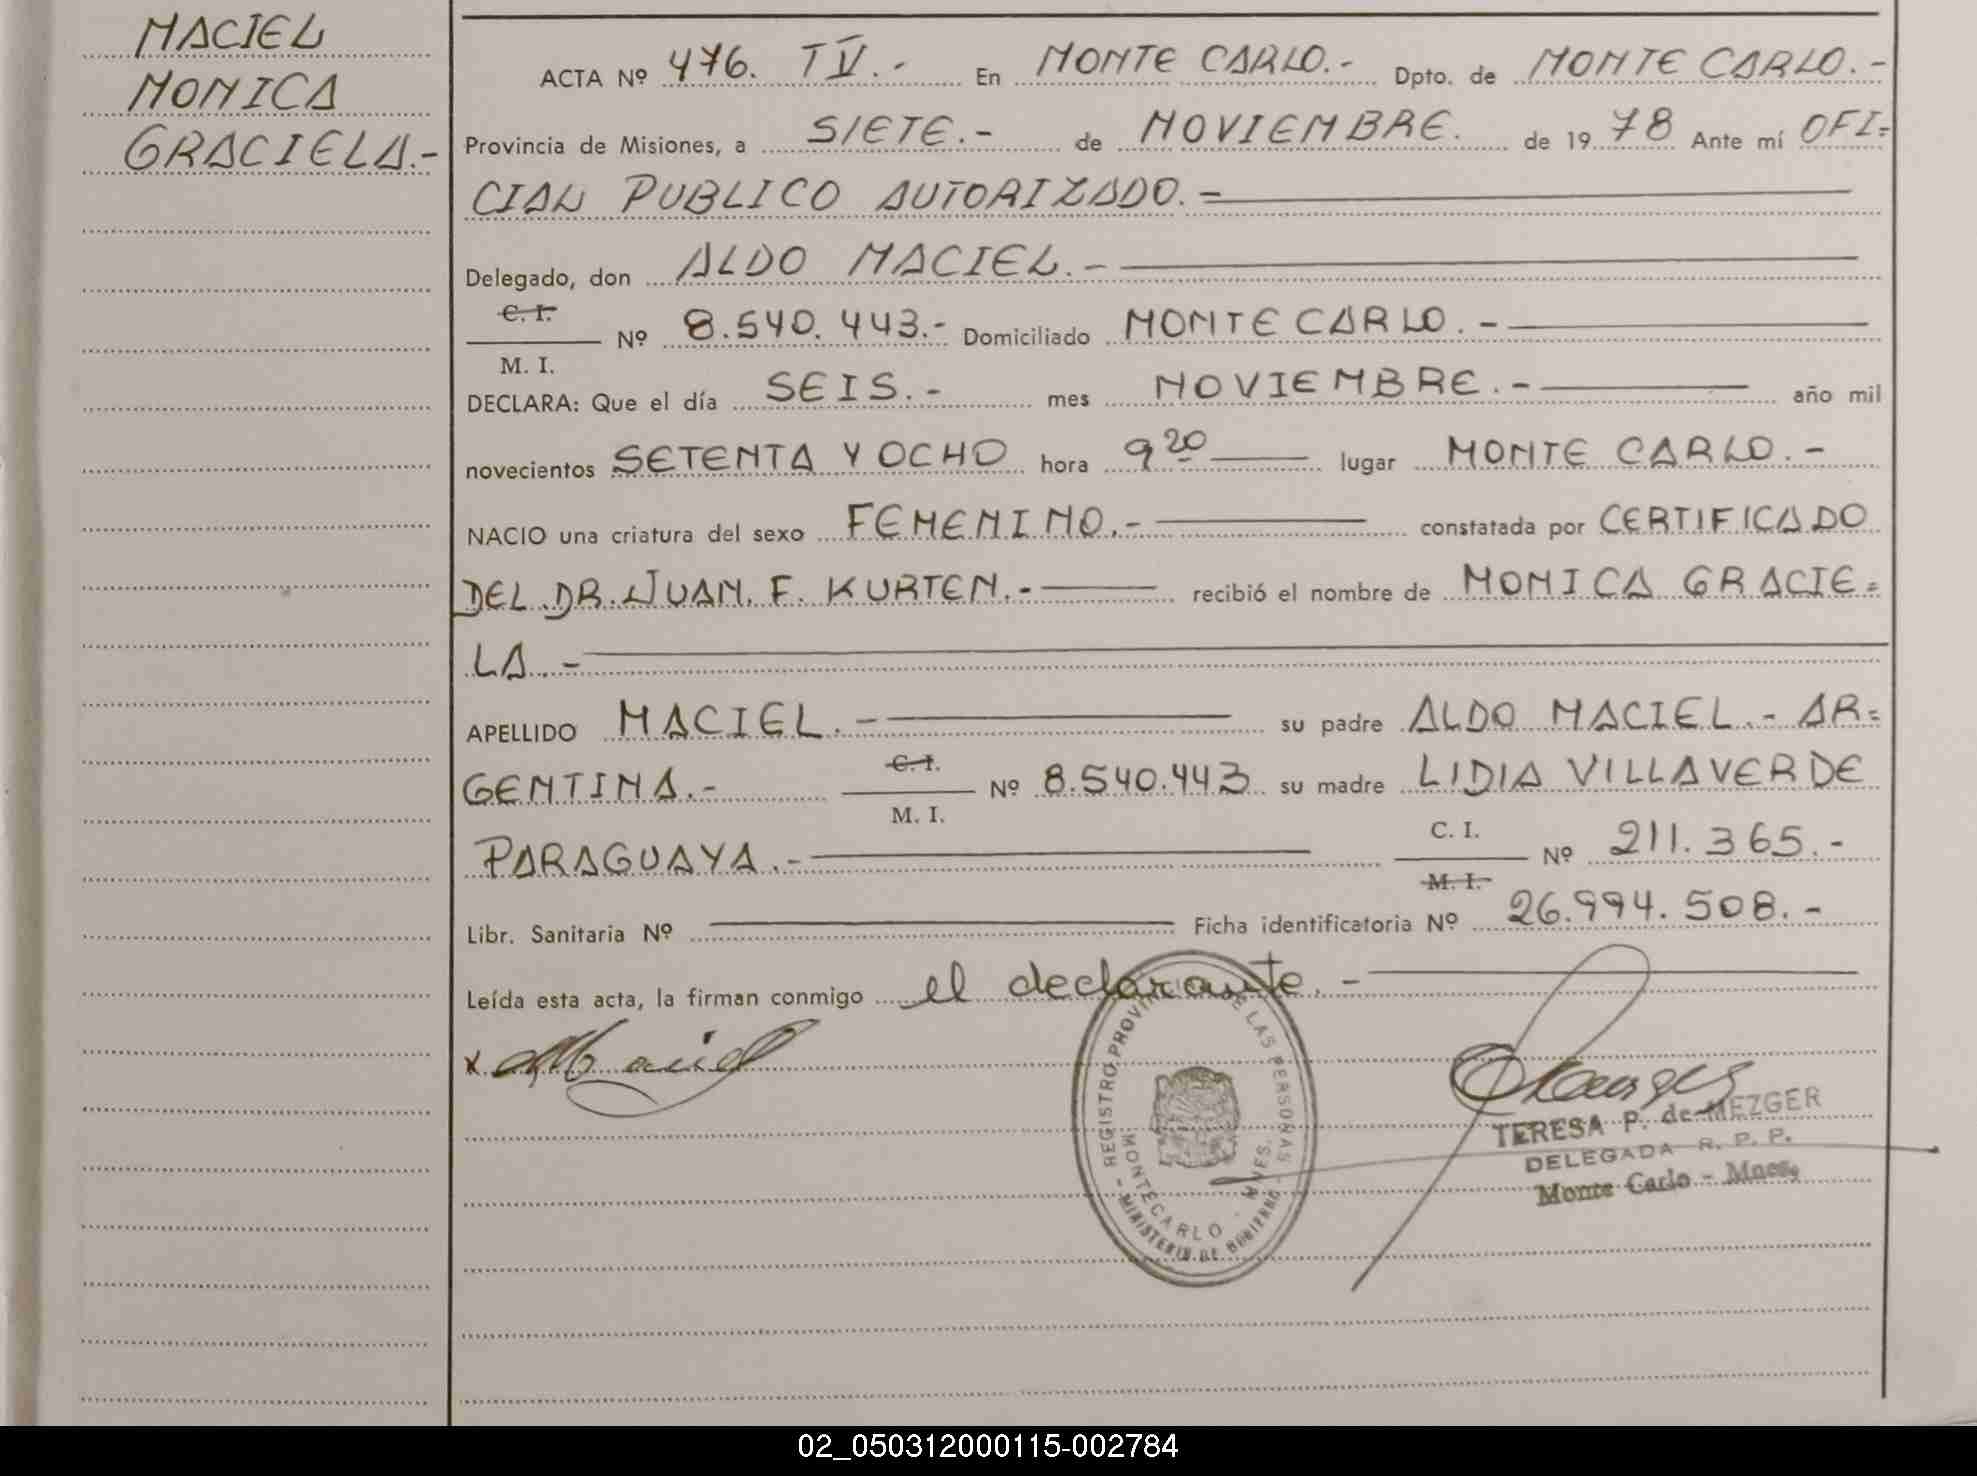 MACIEL
MONICA
GRACIELA.-
ACTA Nº 476. T V.- En MONTE CARLO.- Dpto. de MONTE CARLO.-
Provincia de Misiones, a SIETE.- de NOVIEMBRE. de 1978 Ante mí OFI=
CIAL PUBLICO AUTORIZADO.-
Delegado, don ALDO MACIEL.-
C. I.
M. I. Nº 8.540.443.- Domiciliado MONTE CARLO.-
DECLARA: Que el día SEIS.- mes NOVIEMBRE.- año mil
novecientos SETENTA Y OCHO hora 9 20 lugar MONTE CARLO.-
NACIO una criatura del sexo FEMENINO.- constatada por CERTIFICADO
DEL DR. JUAN. F. KURTEN.- recibió el nombre de MONICA GRACIE=
LA.-
APELLIDO MACIEL.- su padre ALDO MACIEL.- AR=
GENTINA.- C. I. M. I. Nº 8.540.443 su madre LIDIA VILLAVERDE
PARAGUAYA.- C. I. M. I. Nº 211.365.-
Libr. Sanitaria Nº Ficha identificatoria Nº 26.994.508.-
Leída esta acta, la firman conmigo el declarante.-
x Maciel
REGISTRO PROVINCIAL DE LAS PERSONAS
MONTECARLO - MNES.
- MINISTERIO DE GOBIERNO -
TERESA P. de MEZGER
DELEGADA R. P. P.
Monte Carlo - Mnes.
02_050312000115-002784